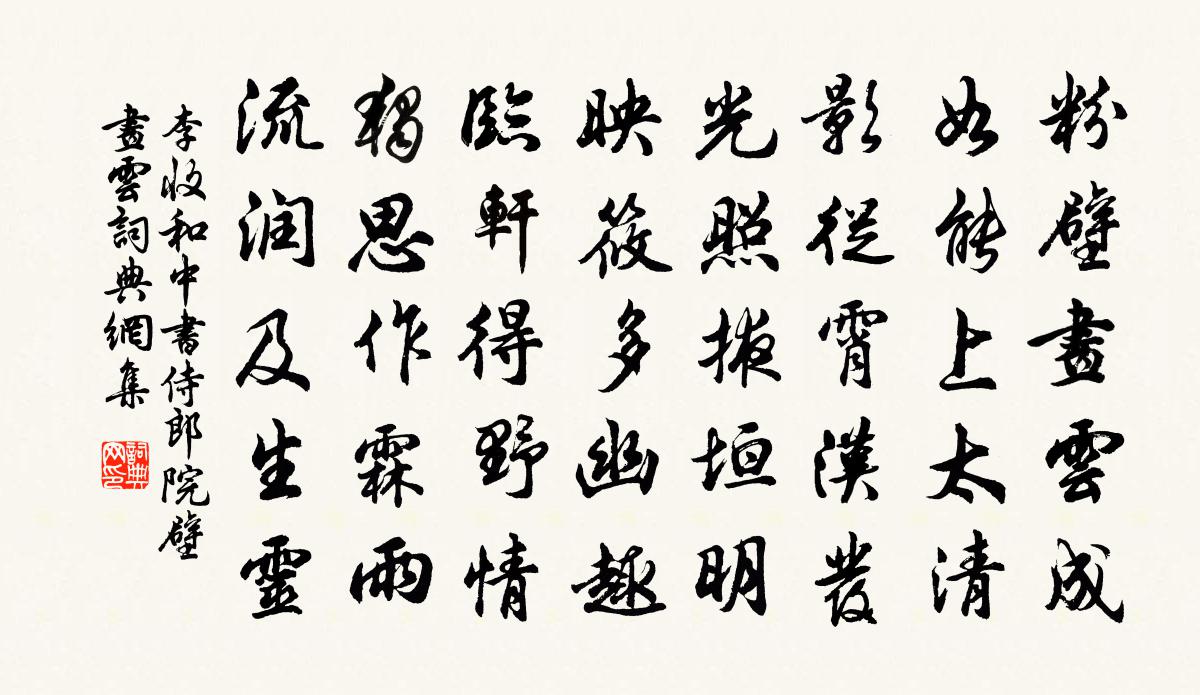 粉壁畫雲成
如能上太清
影從霄漢發
光照掖垣明
映筱多幽趣
臨軒得野情
獨思作霖雨
流润及生靈
李收和中書侍郎院壁
畫雲詞典網集
詞典
网印